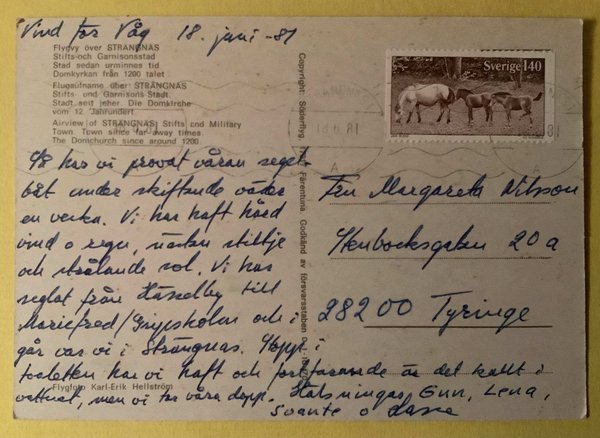 Vind för Våg 18. juni -81
Flygvy över STRÄNGNÄS
Stifts-och Garnisonsstad
Stad sedan urminnes tid
Domkyrkan från 1200 talet
Flugaufname über STRÄNGNÄS
Stifts- und Garnisons Stadt
Stadt seit jeher. Die Domkirche
vom 12. Jahrhundert
Airview of STRÄNGNÄS Stifts and Military
Town. Town since far away times.
The Domchurch since around 1200
har vi provat våran segel-
båt under skiftande väder
en vecka. Vi har haft hård
vind o regn, nästan stiltje
och strålande sol. Vi har
seglat från Hässelby till
Mariefred/Gripsholm och i
går var vi i Strängnäs. Stopp i
toaletten har vi haft och fortfarande är det kallt i
vattnet, men vi tar våra dopp. Hälsningar, Gun, Lena,
Svante o Lasse
Flygfoto Karl-Erik Hellström
Copyright: Söderflyg, Färentuna Godkänd av försvarsstaben
Sverige 140
18.6.81
A
81
A
Fru Margareta Nilsson
Stenbocksgatan 20a
28200 Tyringe